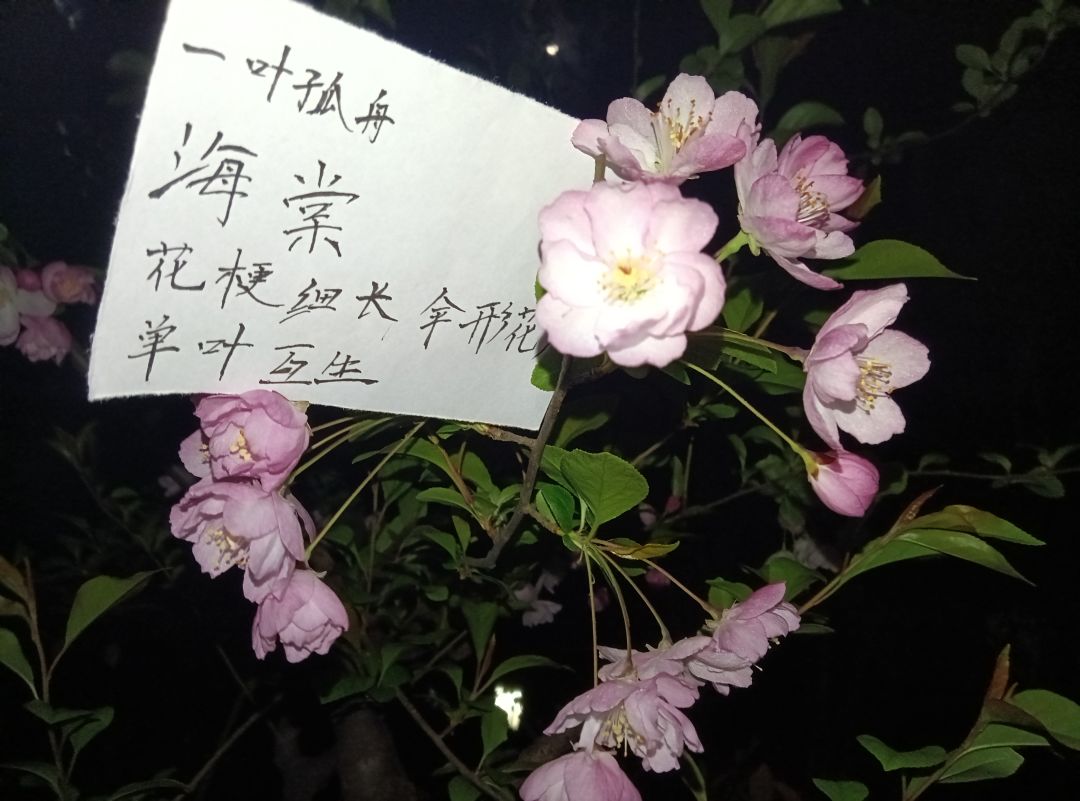 一叶孤舟
海棠
花梗细长 伞形花
单叶互生